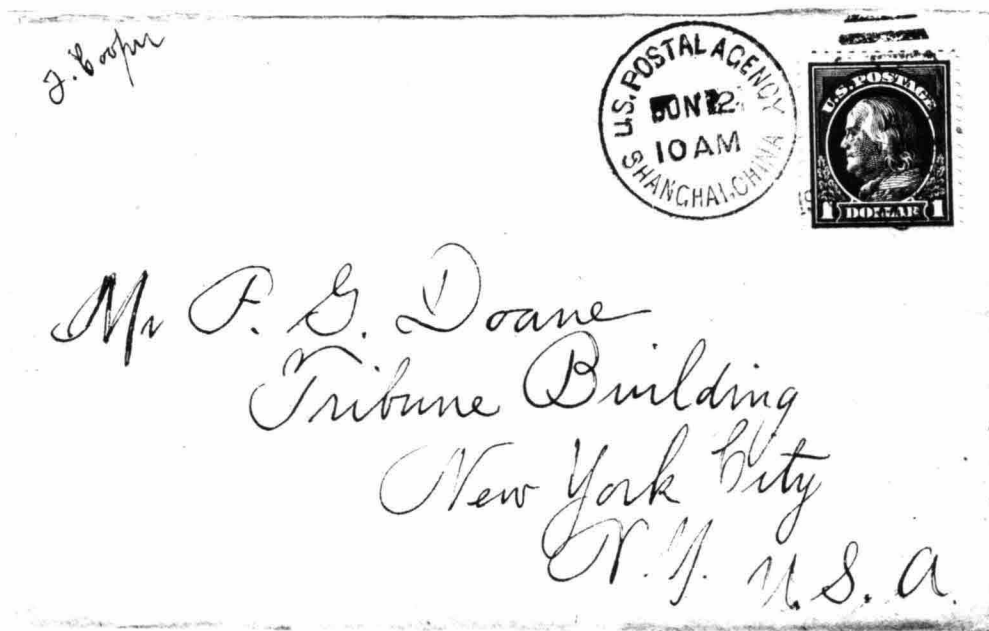 J. Cooper
U.S. POSTAL AGENCY
JUN 2
10 AM
SHANGHAI, CHINA
U.S. POSTAGE
1 DOLLAR 1
Mr P. G. Doane
Tribune Building
New York City
N. Y. U. S. A.